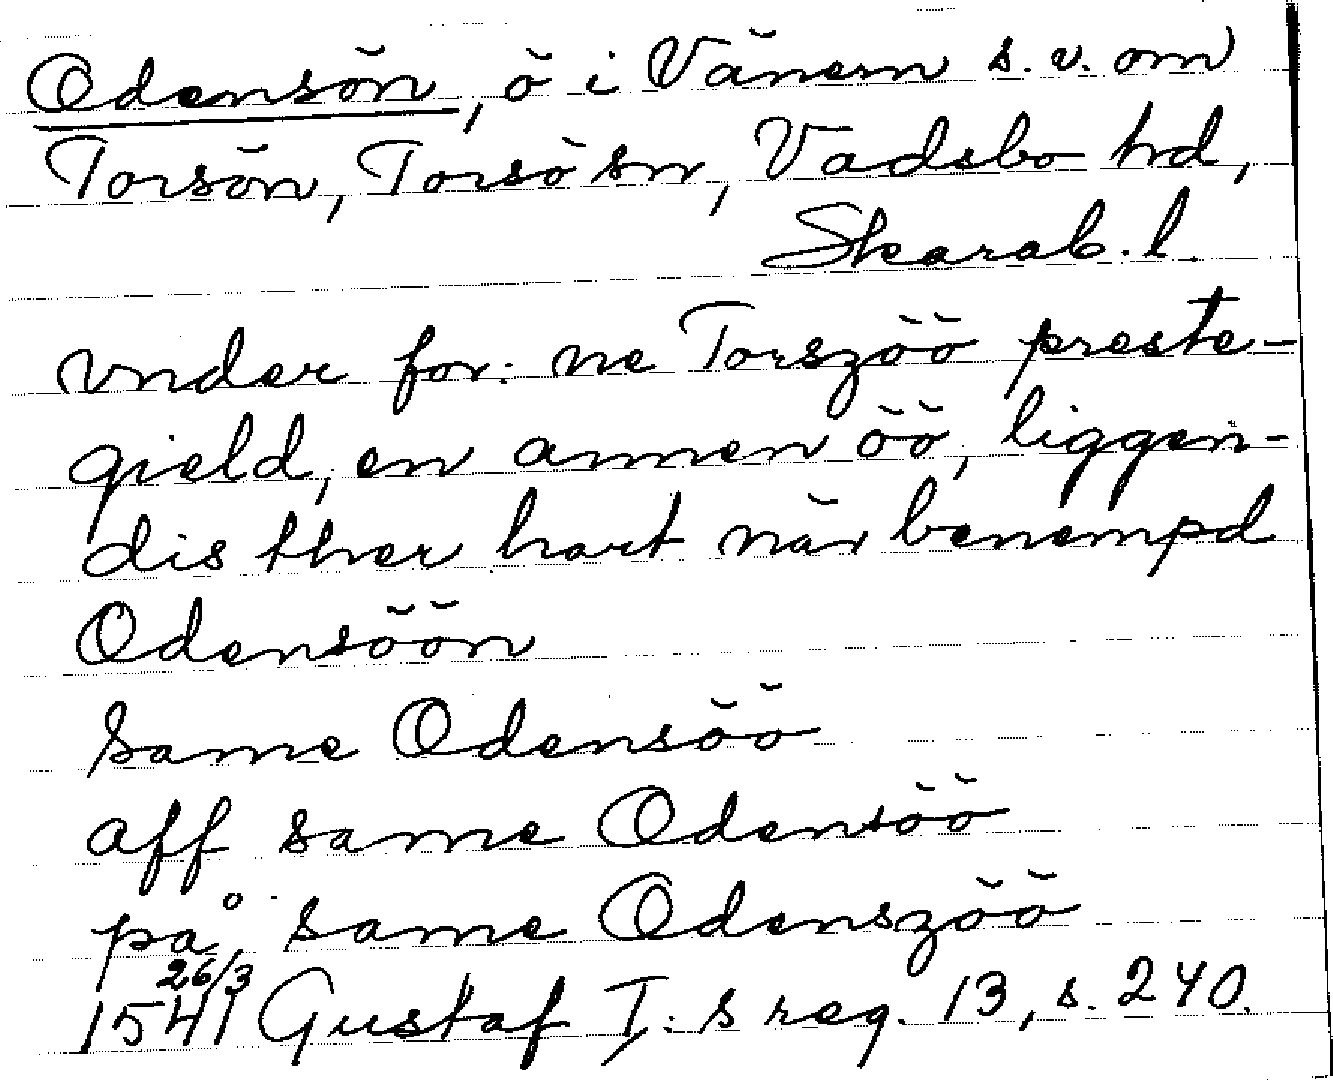 Odensön, ö i Vänern s.v. om
Torsön, Torsö sn, Vadsbo hd,
Skarab. l.
vnder for: ne Torszöö preste-
gield, en annen öö, liggen-
dis ther hart när benempd
Odensöön
same Odensöö
aff same Odensöö
på same Odenszöö
26/3
1541 Gustaf I: s reg. 13, s. 240.